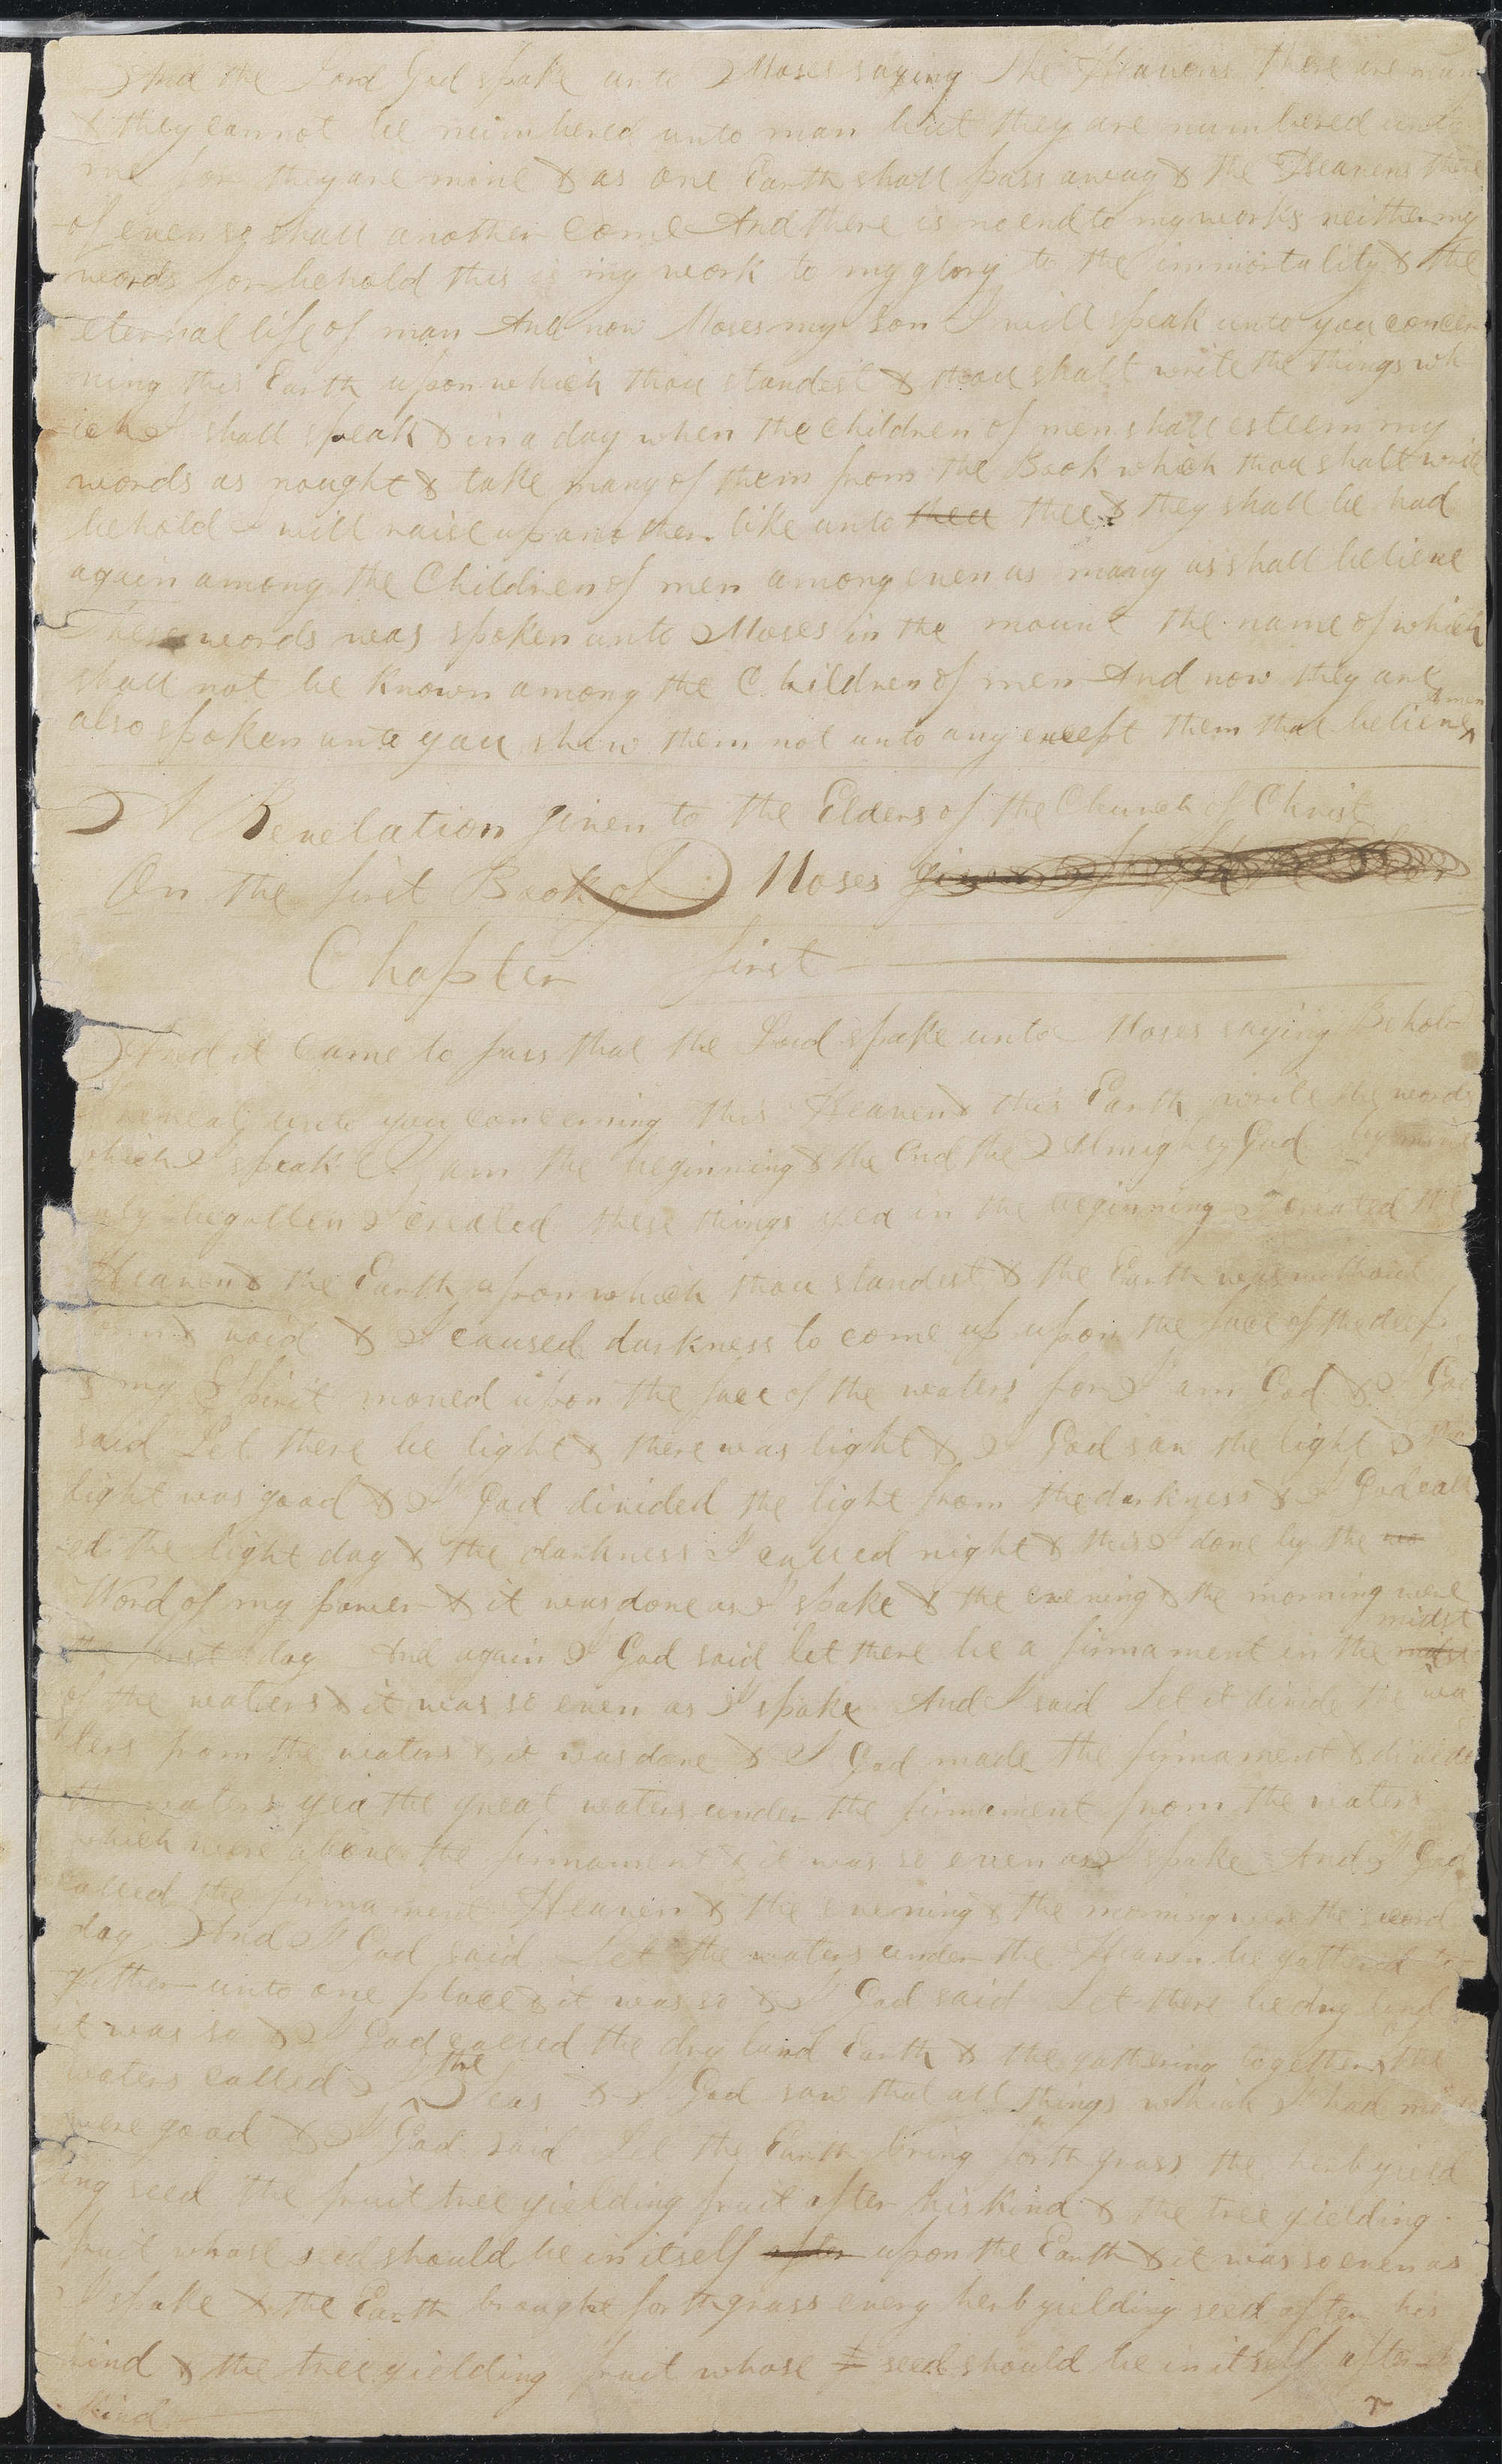 And the Lord God spake unto Moses saying The Heavens there are many
& they cannot be numbered unto man but they are numbered unto
me for they are mine & as one Earth shall pass away & the Heavens there
of even so shall another come And there is no end to my works neither my
words for behold this is my work to my glory to the immortality & the
eternal life of man And now Moses my Son I will speak unto you concer
ning this Earth upon which thou standest & thou shalt write the things wh
ich I shall speak & in a day when the children of men shall esteem my
words as nought & take many of them from the Book which thou shalt write
behold I will raise up another like unto thee thee & they shall be had
again among the Children of men among even as many as shall believe
These words was spoken unto Moses in the mount the name of which
shall not be known among the Children of men And now they are
also spoken unto you shew them not unto any except them that believe Amen
A Revelation given to the Elders of the Church of Christ
On the first Book of Moses
Chapter first
And it came to pass that the Lord spake unto Moses saying Behold
I reveal unto you concerning this Heaven & this Earth write the words
which I speak I am the beginning & the end the Almighty God by mine
only begotten I created these things yea in the beginning I created the
Heaven & the Earth upon which thou standest & the Earth was without
form & void & I caused darkness to come up upon the face of the deep
& my Spirit moved upon the face of the waters for I am God & I God
said Let there be light & there was light & I God saw the light & the
light was good & I God divided the light from the darkness & I God call
ed the light day & the darkness I called night & this I done by the wo
Word of my power & it was done as I spake & the evening & the morning were
the first day And again I God said let there be a firmament in the midst
of the waters & it was so even as I spake And I said Let it divide the wa
ters from the waters & it was done & I God made the firmament & divided
the waters yea the great waters under the firmament from the waters
which were above the firmament & it was so even as I spake And I God
called the firmament Heaven & the evening & the morning were the second
day And I God said Let the waters under the Heaven be gathered to
gether unto one place & it was so & I God said Let there be dry land &
it was so & I God called the dry land Earth & the gathering together of the
waters called I the Seas & I God saw that all things which I had made
were good & I God said Let the Earth bring forth grass the herb yield
ing seed the fruit tree yielding fruit after his kind & the tree yielding
fruit whose seed should be in itself after upon the Earth & it was so even as
I spake & the Earth brought forth grass every herb yielding seed after his
kind & the tree yielding fruit whose seed should be in itself after his
kind